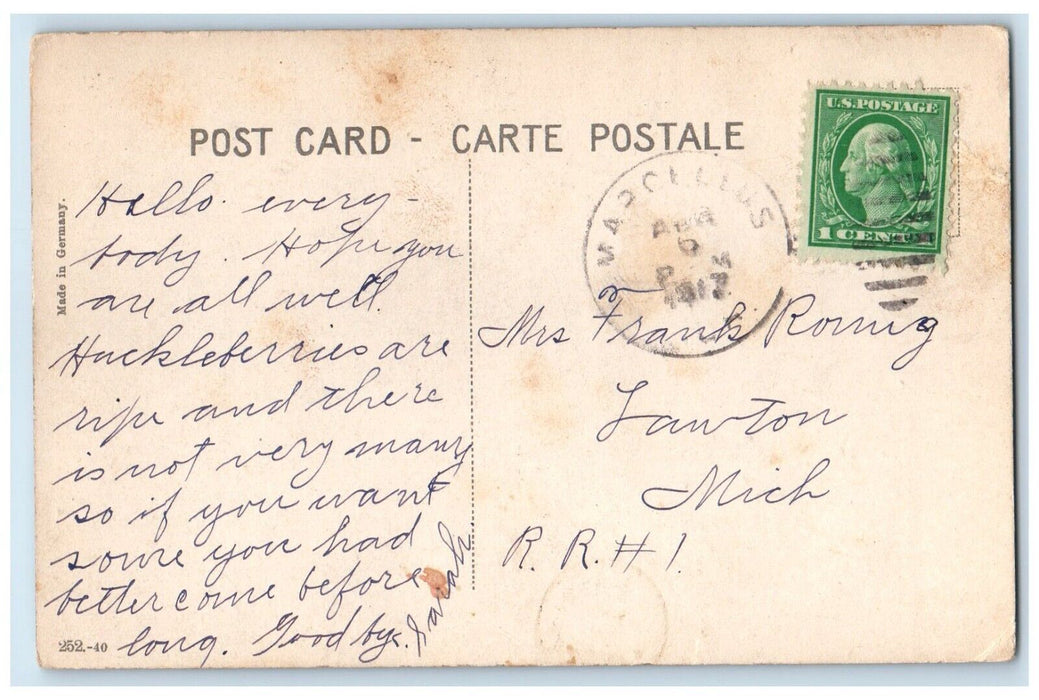 POST CARD - CARTE POSTALE
U.S. POSTAGE
1 CENT
Made in Germany.
MARCELLUS
AUG
6
Hello every-
body. Hope you
are all well.
Huckleberries are
ripe and there
is not very many
so if you want
some you had
better come before
long. Good bye. Sarah
252.-40
Mrs Frank Romig
Lawton
Mich
R. R. # 1.